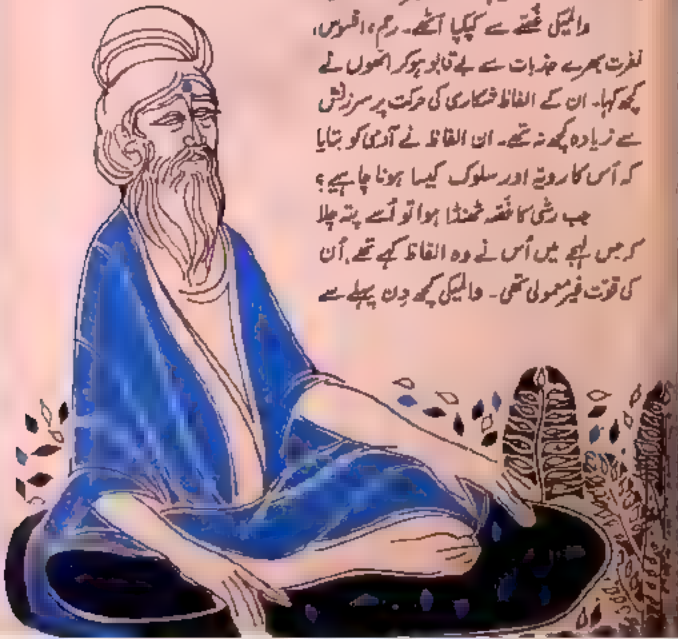 والمیکی غصّے سے کپکپا اُٹھے۔ رحم، افسوس،
نفرت بھرے جذبات سے بے قابو ہوکر انھوں نے
کچھ کہا۔ ان کے الفاظ شکاری کی حرکت پر سرزنش
سے زیادہ کچھ نہ تھے۔ ان الفاظ نے آدمی کو بتایا
کہ اُس کا رویّہ اور سلوک کیسا ہونا چاہیے؟
جب رشی کا غصّہ ٹھنڈا ہوا تو اُسے پتہ چلا
کہ جس لہجے میں اُس نے وہ الفاظ کہے تھے، اُن
کی قوّت غیر معمولی تھی۔ والمیکی کچھ دِن پہلے سے